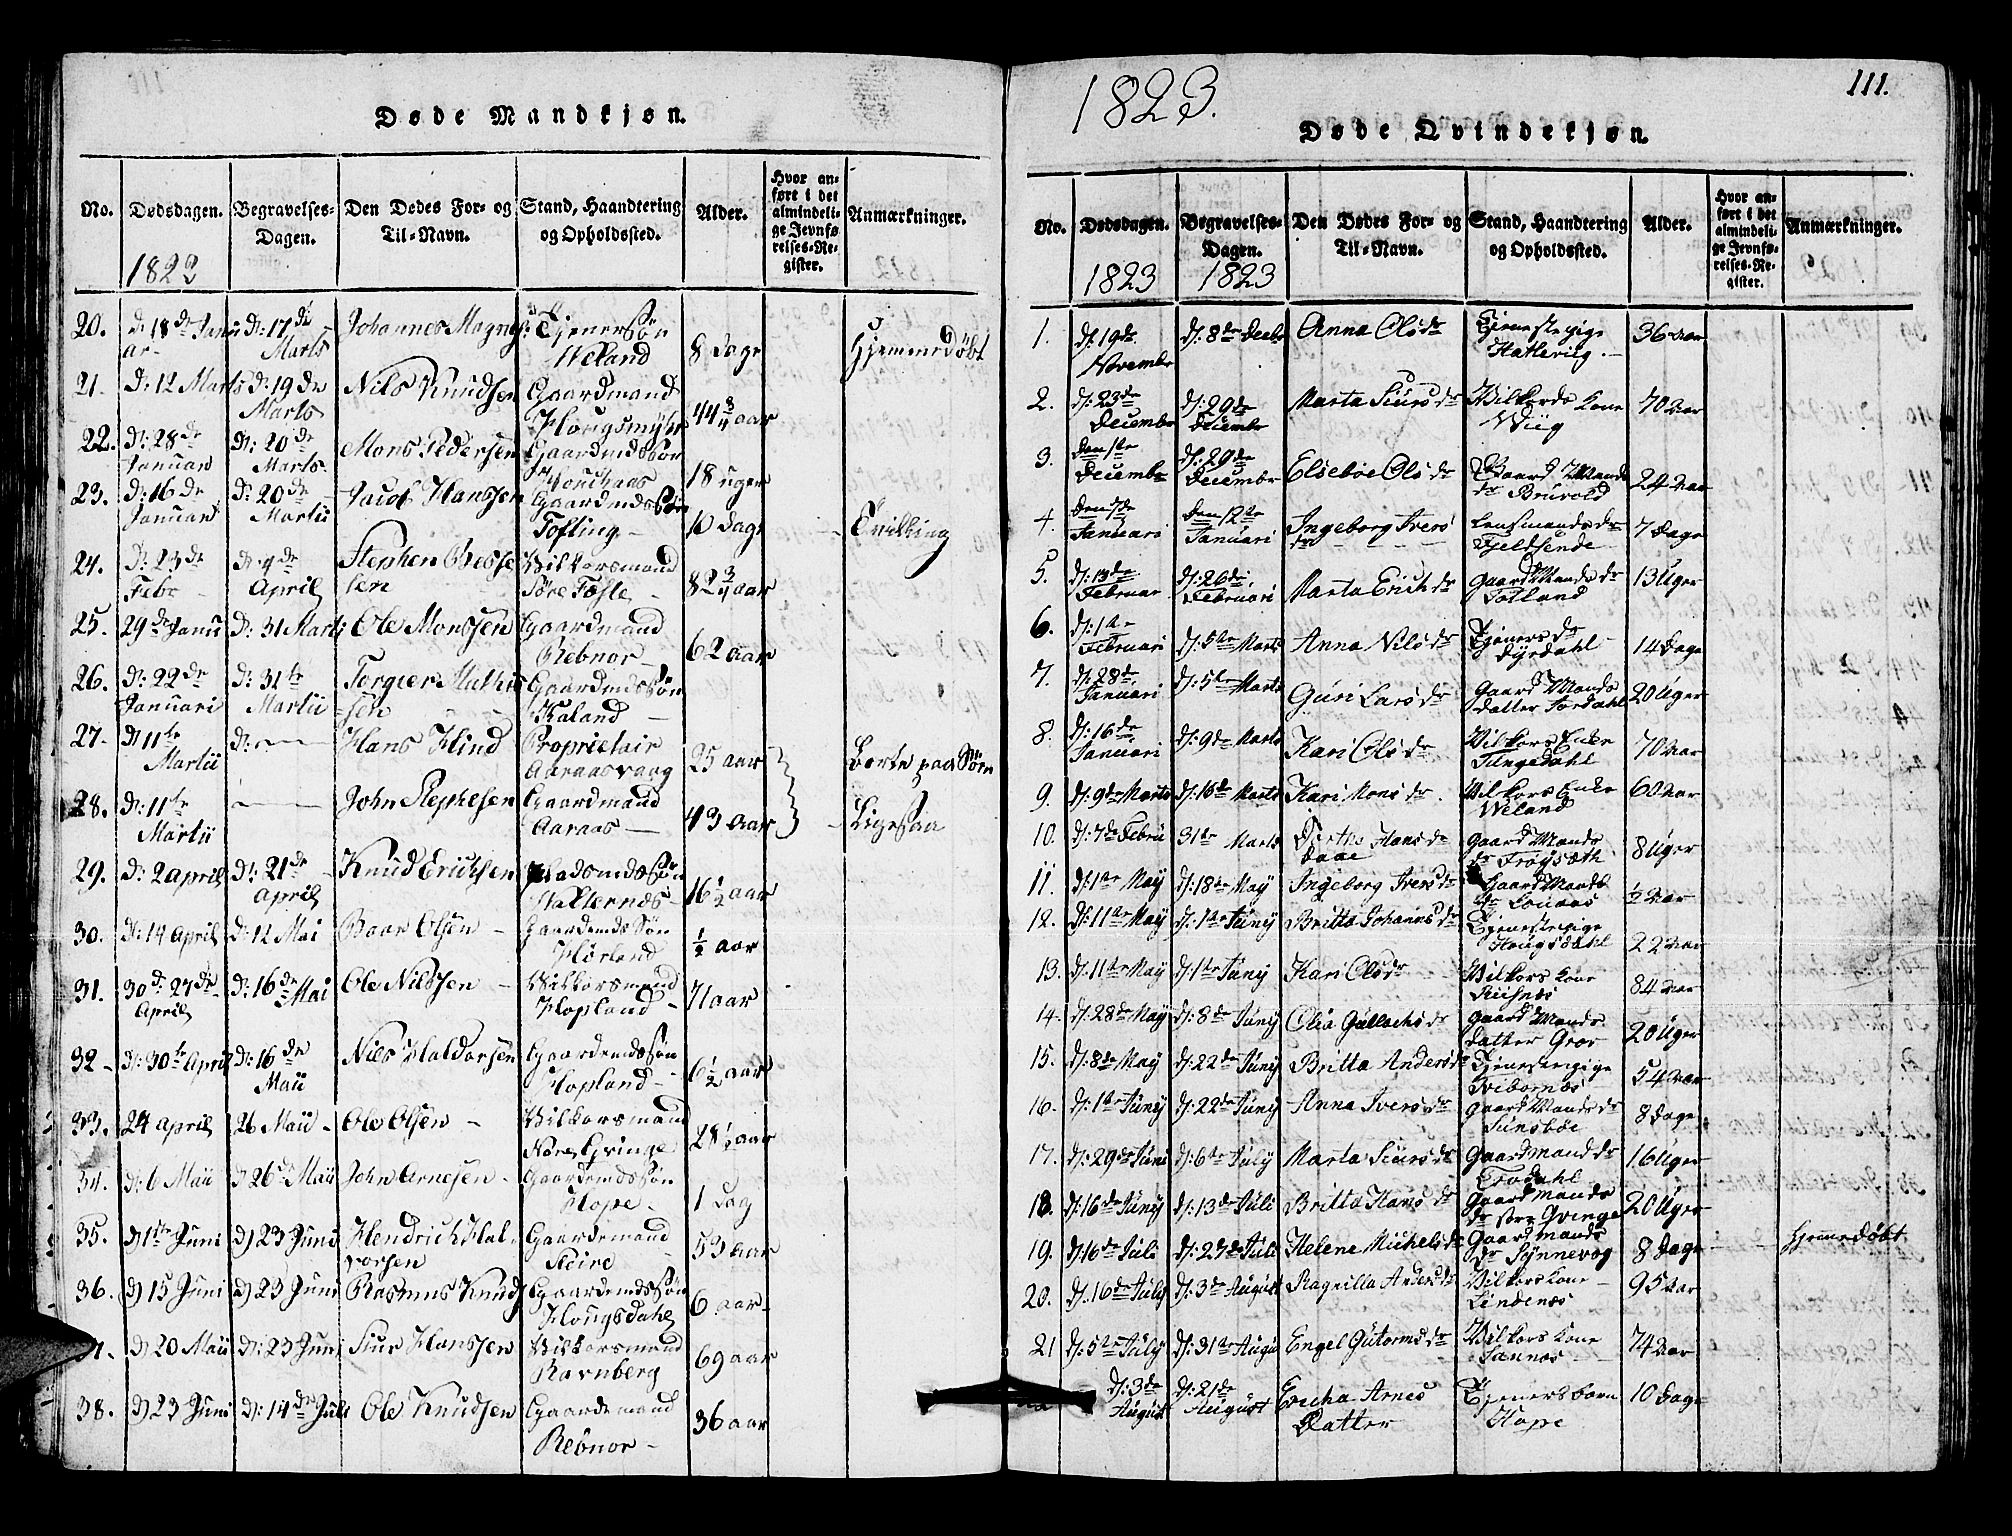 Døde Mandkjøn.
No. Dødsdagen. Begravelses-Dagen. Den Dødes For- og Til-Navn. Stand, Haandtering og Opholdssted. Alder. Hvor anført i det almindelige Jevnførelses-Register. Anmærkninger.
1823
20. d 18de Januar d: 17de Marts Johannes Magnes: Tjeners Søn Weland 8 Dage Hjemmedøbt
21. d: 12 Marts d: 19de Marts Nils Knudsen Gaardmand Hougsmyhr 44 3/4 aar
22. d: 28de Januari d: 20de Marts Mons Pedersen Gaardmds Søn 18 uger
23. d: 16de Januari d: 20de Martii Jacob Hanssen Gaardmds Søn Tofting 10 Dage Tvilling
24. d: 23de Febr d: 4de April Stephen Giessesen Vilkorsmand Søre Tofte 82 3/4 aar
25. 29de Janu d: 31 Marti Ole Monssen Gaardmand Rebnor 62 aar
26. d: 22de Januari d: 31te Martii Torgier Mathissen Gaardmds Søn Kaland
27. d 11te Martii d: — Hans Hind Proprietair Aaraasvaag 25 aar Borte paa Søen
28. d: 11te Martii — John Stephesen Gaardmand Aaraas 43 aar Ligesaa
29. d: 2 april d: 21de April Knud Ericksen Pladsmds Søn Halternes 16 1/2 aar
30. d: 14 April d: 12 Mai Baar Olsen Gaardemds Søn Hørland 1/2 aar
31. 30d 27de April d: 16de Mai Ole Nilssen Vilkorsmand Hopland 71 aar
32 d: 30te April d: 16de Maii Niels Haldorsen Gaardemdssøn Hopland 6 1/2 aar
33. 24 April 26 Maii Ole Olsen Vilkorsmand Nøre Qvinge 28 1/2 aar
34. d: 6 Maii d 26de Maii John Arnesen Gaardemds søn Hope 1 Dag
35. d) 1ste Juni d) 23 Juni Hendrich Halvorsen Gaardemand Steire 53 aar
36. d) 15 Juni d) 23 Juni Rasmus Knuds Gaardemds Søn Hougsdahl 6 aar
d) 20 Maii d: 23 Juni Siur Hanssen Vilkorsmand Ravnberg 69 aar
38. d) 23 Juni d: 14de Juli Ole Knudsen Gaardemand Rebnor 36 aar
1823.
111.
Døde Qvindekjøn.
No. Dødsdagen. Begravelses-Dagen. Den Dødes For- og Til-Navn. Stand, Haandtering og Opholdssted. Alder. Hvor anført i det almindelige Jevnførelses-Register. Anmærkninger.
1823 1823
1. d: 19de Novembr d: 8de Decbr Anna Olsdr Tjenestepige Hatlevig 36 Aar
2. d: 23de Decembr d: 29de Decembr Marta Siursdr Vilkords Kone Wiig 70 Aar
3. den 1te Decembr d: 29de Decembr Elsebe Olsdr Gaard Mands dr Bruvold 24 Aar
4. den 5de Januari den 12te Januari Ingeborg Ivers dr Lensmands dr Fjeldsende 7 Dage
5. d: 13de Februar d: 26de Februari Marta Erichdr Gaard Mands dr Totland 13 Uger
6. d: 1te Februari d: 5te Marts Anna Nilsdr Tjeners dr Dyrdahl 14 Dage
7. d: 28de Januari d: 5te Marts Guri Larsdr Gaard Mands datter Sordahl 20 Uger
8. d: 16de Januari d: 9de Marts Kari Olsdr Vilkors Enke Tungedahl 70 Aar
9. d: 9de Marts d: 16de Marts Kari Mons dr. Vilkors Enke Weland 60 Aar
10. d: 7de Febru 31te Marts Dorthe Hans dr Daae Gaard Mands dr Frøysæth 8 Uger
11. d: 1te May d: 18de May Ingeborg Iversdr Gaard Mands dr Lonaas 1/2 Aar
12. d: 11te May d: 1te Juny Britta Johannsdr Tjenestepige Hougsdahl 22 Aar
13. d: 11te May d: 1te Juny Kari Olsdr Vilkors Kone Risnæs 84 Aar
14. d: 28de May d: 8de Juny Olia Gullachsdr Gaard Mands datter Grov 20 Uger
15. d: 8de May d: 22de Juny Britta Andersdr Tjenestepige 54 Aar
16. d: 1te Juny d: 22de Juny Anna Iversdr Gaard Mands dr Sunsbøe 8 Dage
17. d: 29de Juni d: 6te July Marta Siursdr Gaardmand dr Trodahl 16 Uger
18. d: 16de Juny d: 13de Juli Britta Hansdr Gaard Mands dr Nøre Qvinge 20 Uger
19. d 16de Juli d: 27de Juli Helene Michelsdr Gaard Mands dr Synnevog 8 Dage Hjemmedøbt
20. d. 16de July d: 3de August Ragnilla Andersdr Vilkors Kone Lindenæs 95 Aar
21 d: 5te July d: 31te Augu Engel Gutormsdr Vilkors Kone Sannøs 74 Aar
d: 3de August d: 21de August Ericha Arnes Datter Tjeners barn Hope 10 Dage